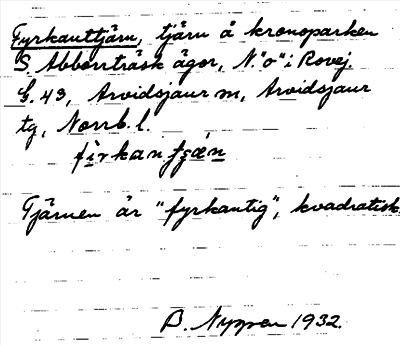 Fyrkanttjärn, tjärn å kronoparken
S. Abborrträsk ägor, N. "o" i Rovej.
G. 43, Arvidsjaur sn, Arvidsjaur
tg, Norrb. l.
Tjärnen är "fyrkantig", kvadratisk.
B. Nyman 1932.